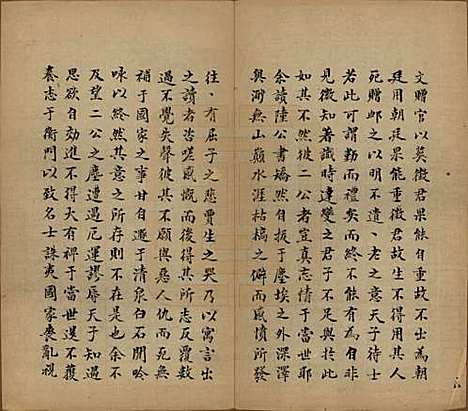 文贈官以莫徵君果能自重故不出為朝
廷用朝廷果能重徵君故生不得用其人
死贈卹之以明不遺一老之意天子待士
若此可謂勤而禮矣而終不能有為自非
見微知著識時達變之君子不足與於此
如其不然彼二公者豈真忘情于當世耶
余讀陸公書矯然自拔于塵埃之外深澤
與澗無山巔水涯枯槁之僻而感憤所發
往往有屈子之悲賈生之哭乃以寓言出
之讀者咨嗟感慨而後得其所志反覆數
過不覺失聲彼其不願惡人仇而死無
補于國家之事甘自逃于清泉白石閒吟
咏以終然其意之所存則不在是也余不
及望二公之塵遭遇厄運謬辱天子知當
思欲自効進不得大有裨于當世退不獲
養志于衡門以致名士誅夷國家喪亂視